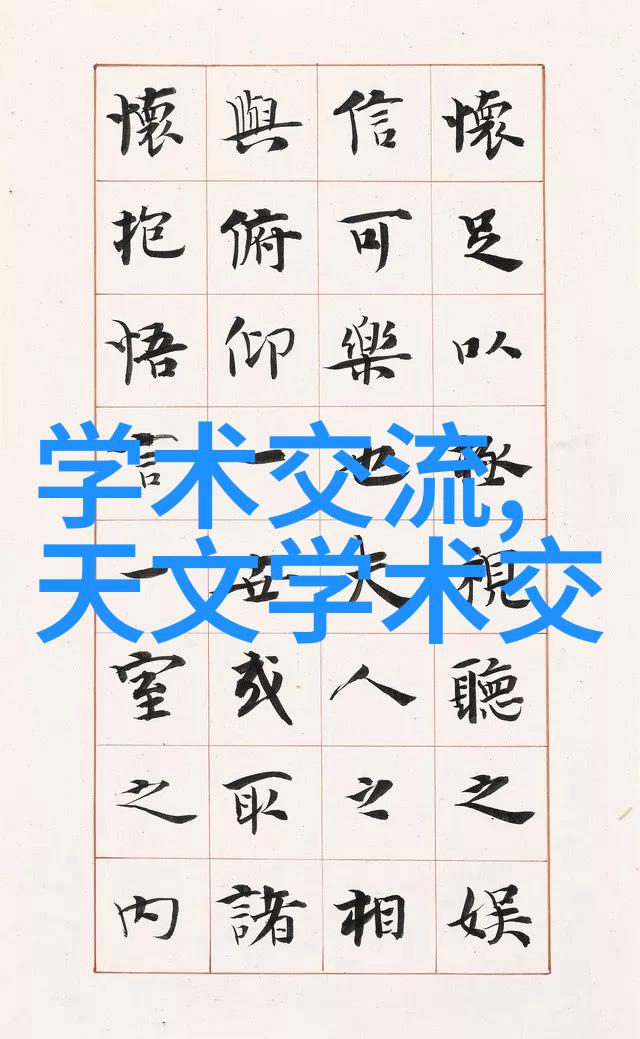 懷足以極視聽之娱
信可樂也夫人之相
與俯仰一世或取諸
懷抱悟言一室之内
学术交流,
天文学术交